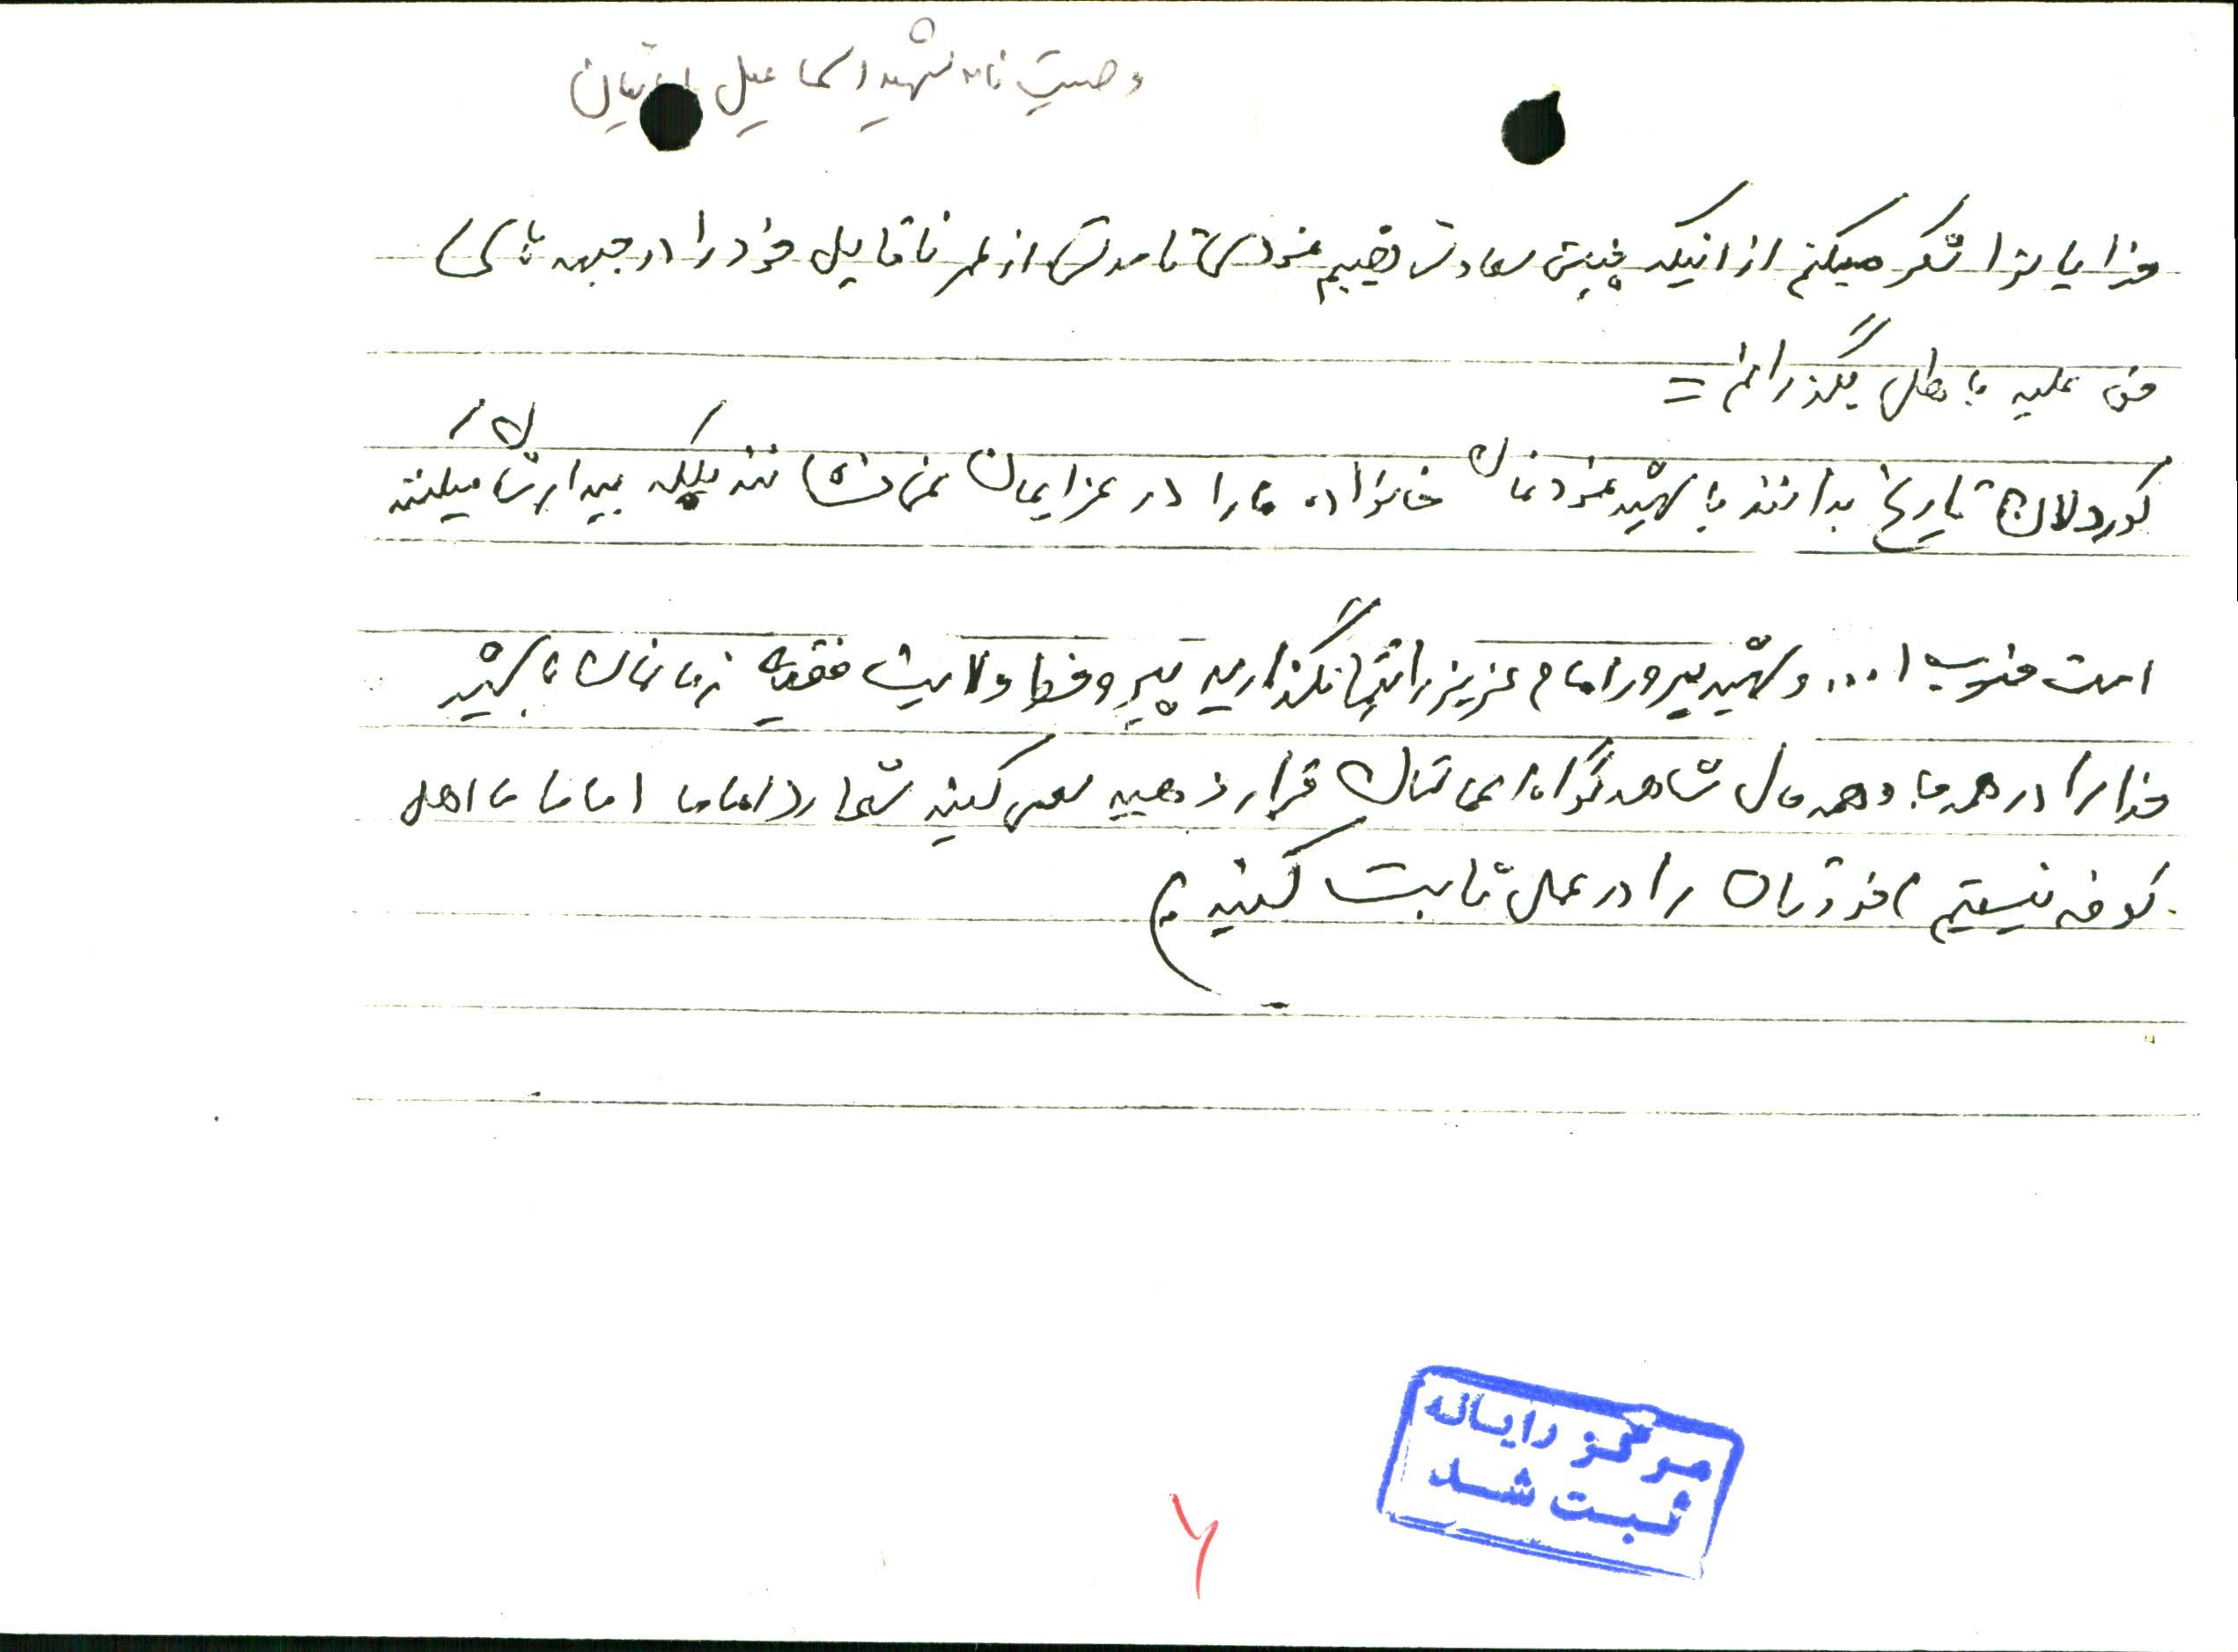 وصیت نامه شهید اسماعیل
خدایا ترا شکر میکنم از اینکه چنین سعادت نصیبم نمودی تا مدتی از عمر ناقابل خود را در جبهه های
حق علیه باطل بگذرانم =
کوردلان تاریخ بدانند با شهید نمودنمان خانواده ما را در عزایمان نمی نشانند بلکه بیدارشان میکنند
امت حزب ا... و شهید پرور امام عزیز را تنها نگذارید پیرو خط ولایت فقیه زمانمان باشید
خدا را در همه جا و همه حال شاهد گواه اعمالتان قرار دهید سعی کنید شعار (اماما اماما ما اهل
کوفه نیستیم) خودتان را در عمل ثابت کنید
مرکز رایانه
ثبت شد
۶